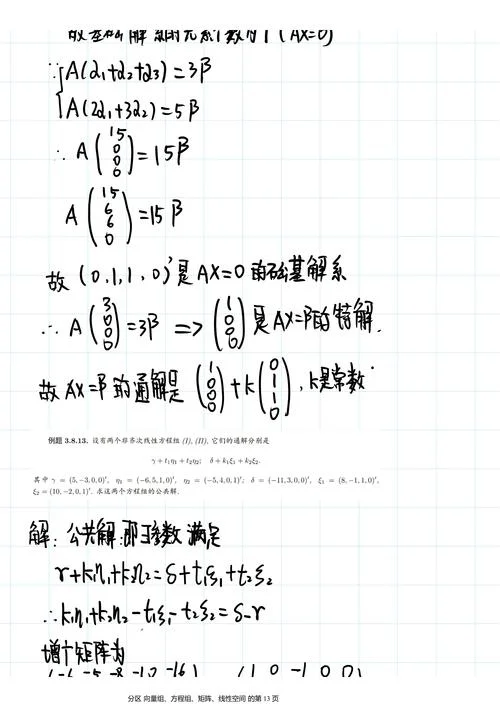 故基础解系的元素个数为1(AX=0)
∵{A(α₁+α₂+α₃)=3β
A(2α₁+3α₂)=5β
∴ A(15 0 0 0)=15β
A(15 6 6 0)=15β
故 (0,1,1,0)'是AX=0的基础解系
∴ A(3 0 0 0)=3β => (1 0 0 0)是AX=β的特解.
故AX=β的通解是(1 0 0 0)+k(0 1 1 0), k是常数
例题 3.8.13. 设有两个非齐次线性方程组 (I), (II), 它们的通解分别是
γ + t₁η₁ + t₂η₂; δ + k₁ξ₁ + k₂ξ₂.
其中 γ = (5, −3, 0, 0)′, η₁ = (−6, 5, 1, 0)′, η₂ = (−5, 4, 0, 1)′; δ = (−11, 3, 0, 0)′, ξ₁ = (8, −1, 1, 0)′,
ξ₂ = (10, −2, 0, 1)′. 求这两个方程组的公共解.
解: 公共解,即参数满足
r+k₁η₁+k₂η₂=δ+t₁ξ₁+t₂ξ₂
∴k₁η₁+k₂η₂-t₁ξ₁-t₂ξ₂=δ-r
增广矩阵为
(-6 -5 -8 -10 -16) (1 0 -1 0 0)
分区 向量组、方程组、矩阵、线性空间 的第 13 页